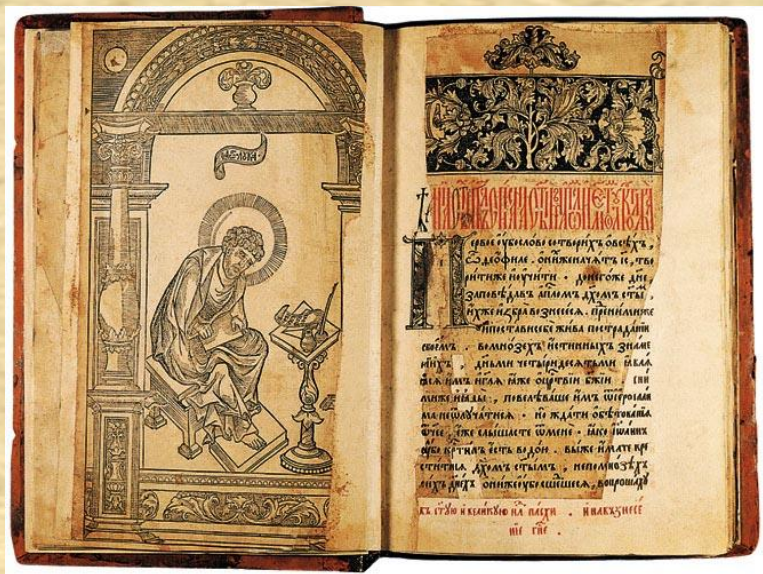 Первое ꙋбо слово сотворихъ о всѣхъ ,
ѽ деѡфиле . о ниже начатъ іс҃ , тво
рити же и ꙋчити . до него же дн҃е
заповѣдавъ ап҃лѡмъ дх҃омъ ст҃ы ,
ихже избра вознесесѧ . пре ними же
и постави себе жива по страдании
своемъ . во мнозехъ истинныхъ знаме
ниихъ , дньми четыридесѧтьми ꙗвлѧ
ꙗсѧ имъ и гл҃ѧ ꙗже о црⷭ҇твии бж҃ии . сни
миже ꙗды , повелѣваше имъ ѿ їеросали
ма не ѿлꙋчатисѧ . но ждати обѣтованїѧ
ѿче , еже слышасте ѿ мене . ꙗко їѡаннъ
ꙋбо крⷭ҇тилъ есть водою . вы же имате кре
ститисѧ дх҃омъ ст҃ымъ , не по мнозѣхъ
сихъ днехъ . они же ꙋбо сшедшесѧ , вопрошахꙋ
въ ст҃ꙋю и великꙋю нл҃ю пасхи . и на възнесе
ние гн҃е .